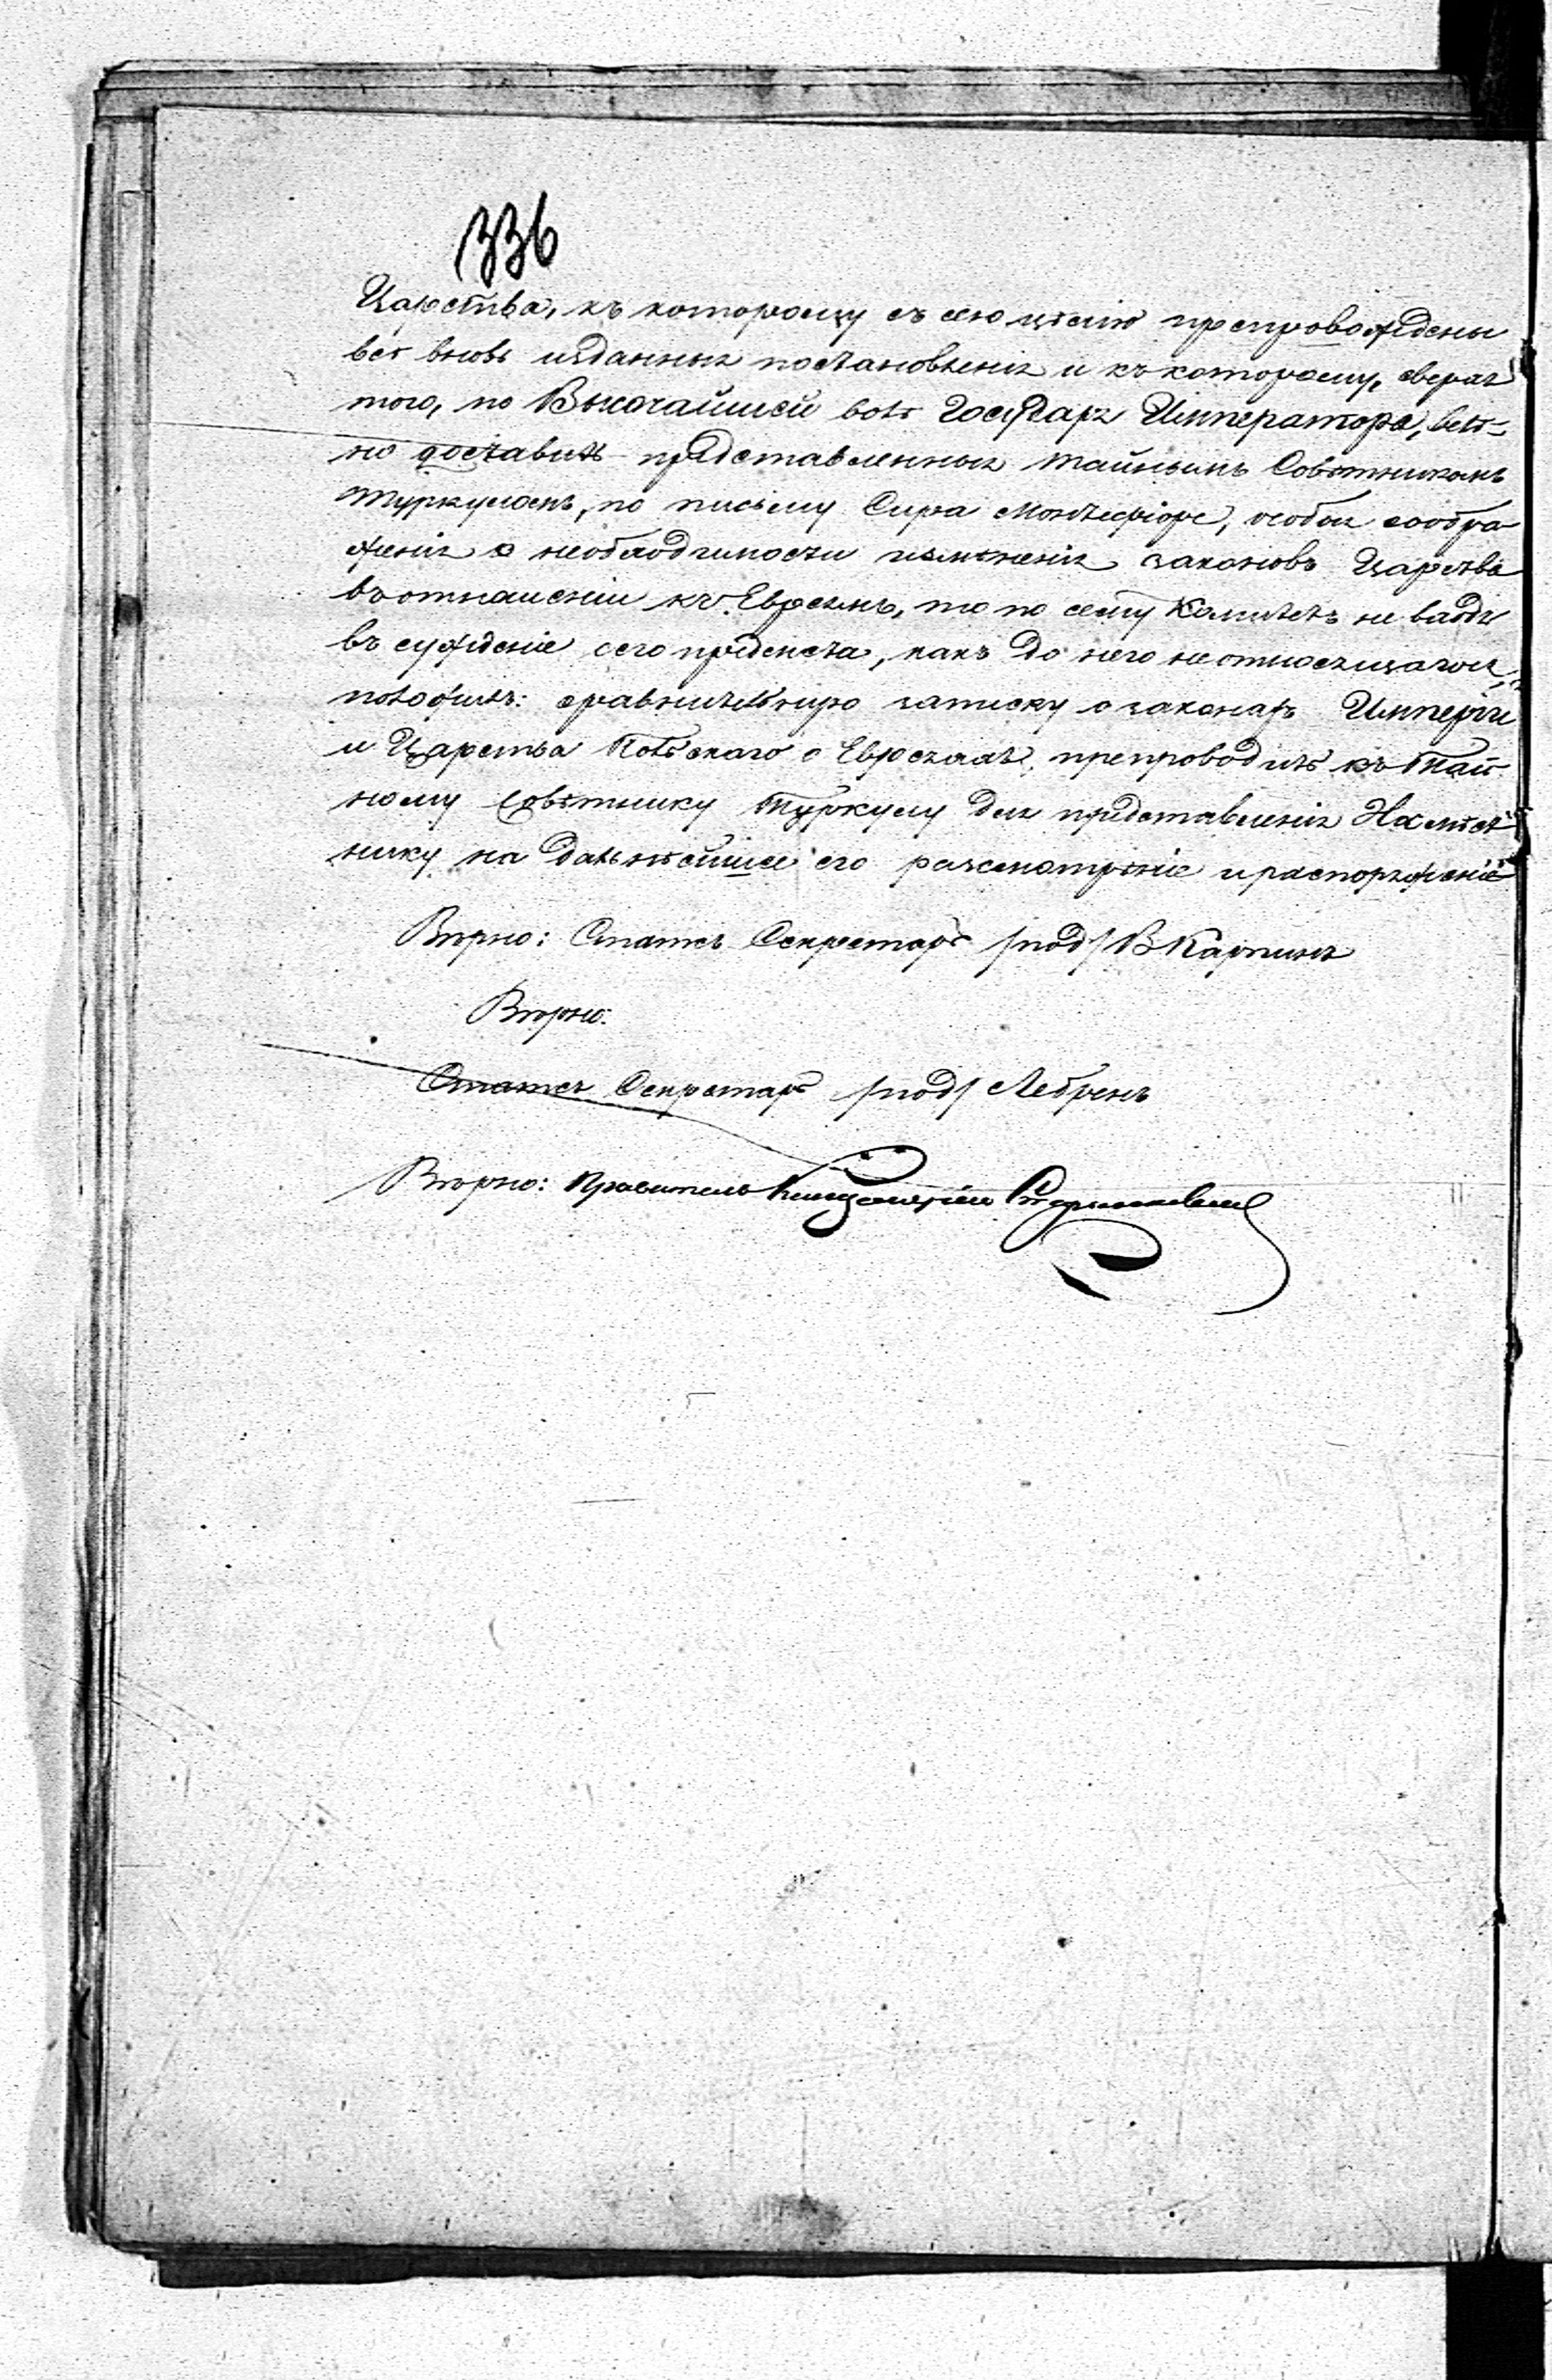 336
Царства, къ которому съ сею цѣлію препровождены
всѣ вновь изданныя постановленія и къ которому, сверхъ
того, по Высочайшей волѣ Государя Императора, велѣ-
но доставить представленныя Тайнымъ Совѣтникомъ
Туркуломъ, по письму Сира Монтефіоре, особыя сообра
женія о необходимости измѣненія законовъ Царства
въ отношеніи къ Евреямъ, то по сему Комитетъ не входя
въ сужденіе сего предмета, какъ до него не относящагося,
положилъ: сравнительную записку о законахъ Имперіи
и Царства Польскаго о Евреяхъ, препроводить къ Тай
ному Совѣтнику Туркулу для представленія Намѣст
нику на дальнѣйшее его разсмотрѣніе и распоряженіе
Вѣрно: Статсъ Секретарь /под/ В Карпинъ
Вѣрно:
Статсъ Секретарь /под/ Лебренъ
Вѣрно: Правитель Канцеляріи